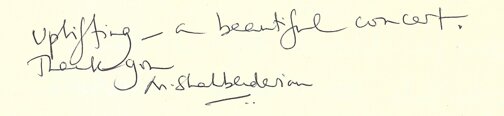 Uplifting – a beautiful concert.
Thank you